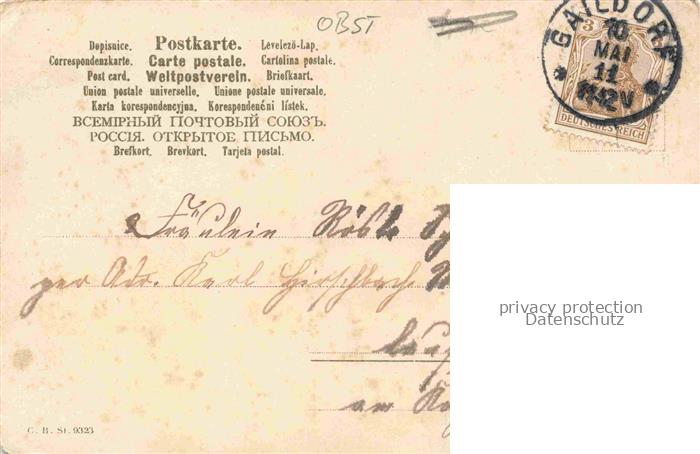 OBST
Dopisnice. Postkarte. Levelező-Lap.
Correspondenzkarte. Carte postale. Cartolina postale.
Post card. Weltpostverein. Briefkaart.
Union postale universelle. Unione postale universale.
Karta korespondencyjna. Korespondenéni lístek.
ВСЕМІРНЫЙ ПОЧТОВЫЙ СОЮЗЪ.
РОССІЯ. ОТКРЫТОЕ ПИСЬМО.
Brefkort. Brevkort. Tarjeta postal.
GAILDORF
10
MAI
11
3
DEUTSCHES REICH
Fräulein
per Adr. Karl Hirschbach
am
privacy protection
Datenschutz
C. B. St. 9323